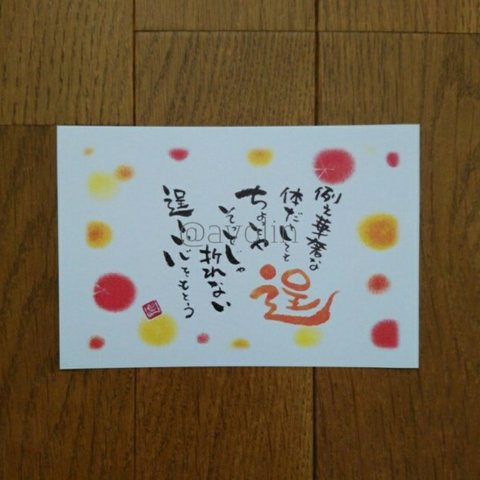 例え華奢な
体だとしても
ちょいや
そっとじゃ
折れない
逞しい心をもとう
逞
@ayolin